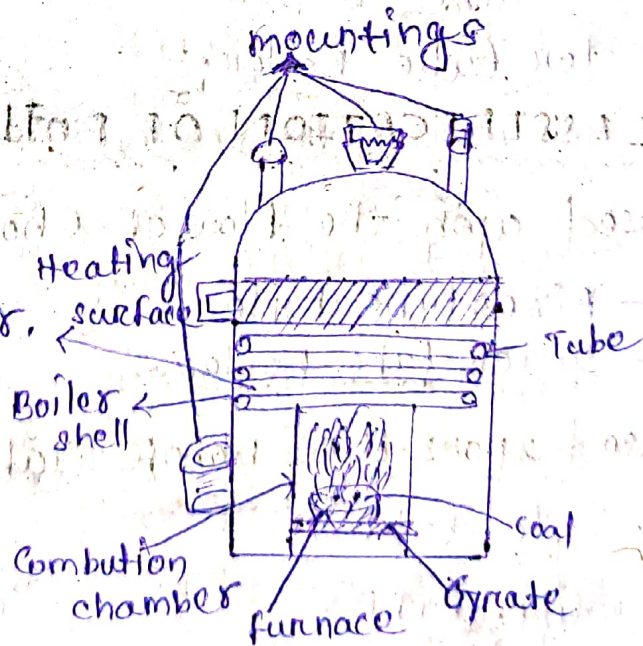 mountings
Heating
surface
r.
Tube
Boiler
shell
coal
Combution
chamber
furnace
Gyrate